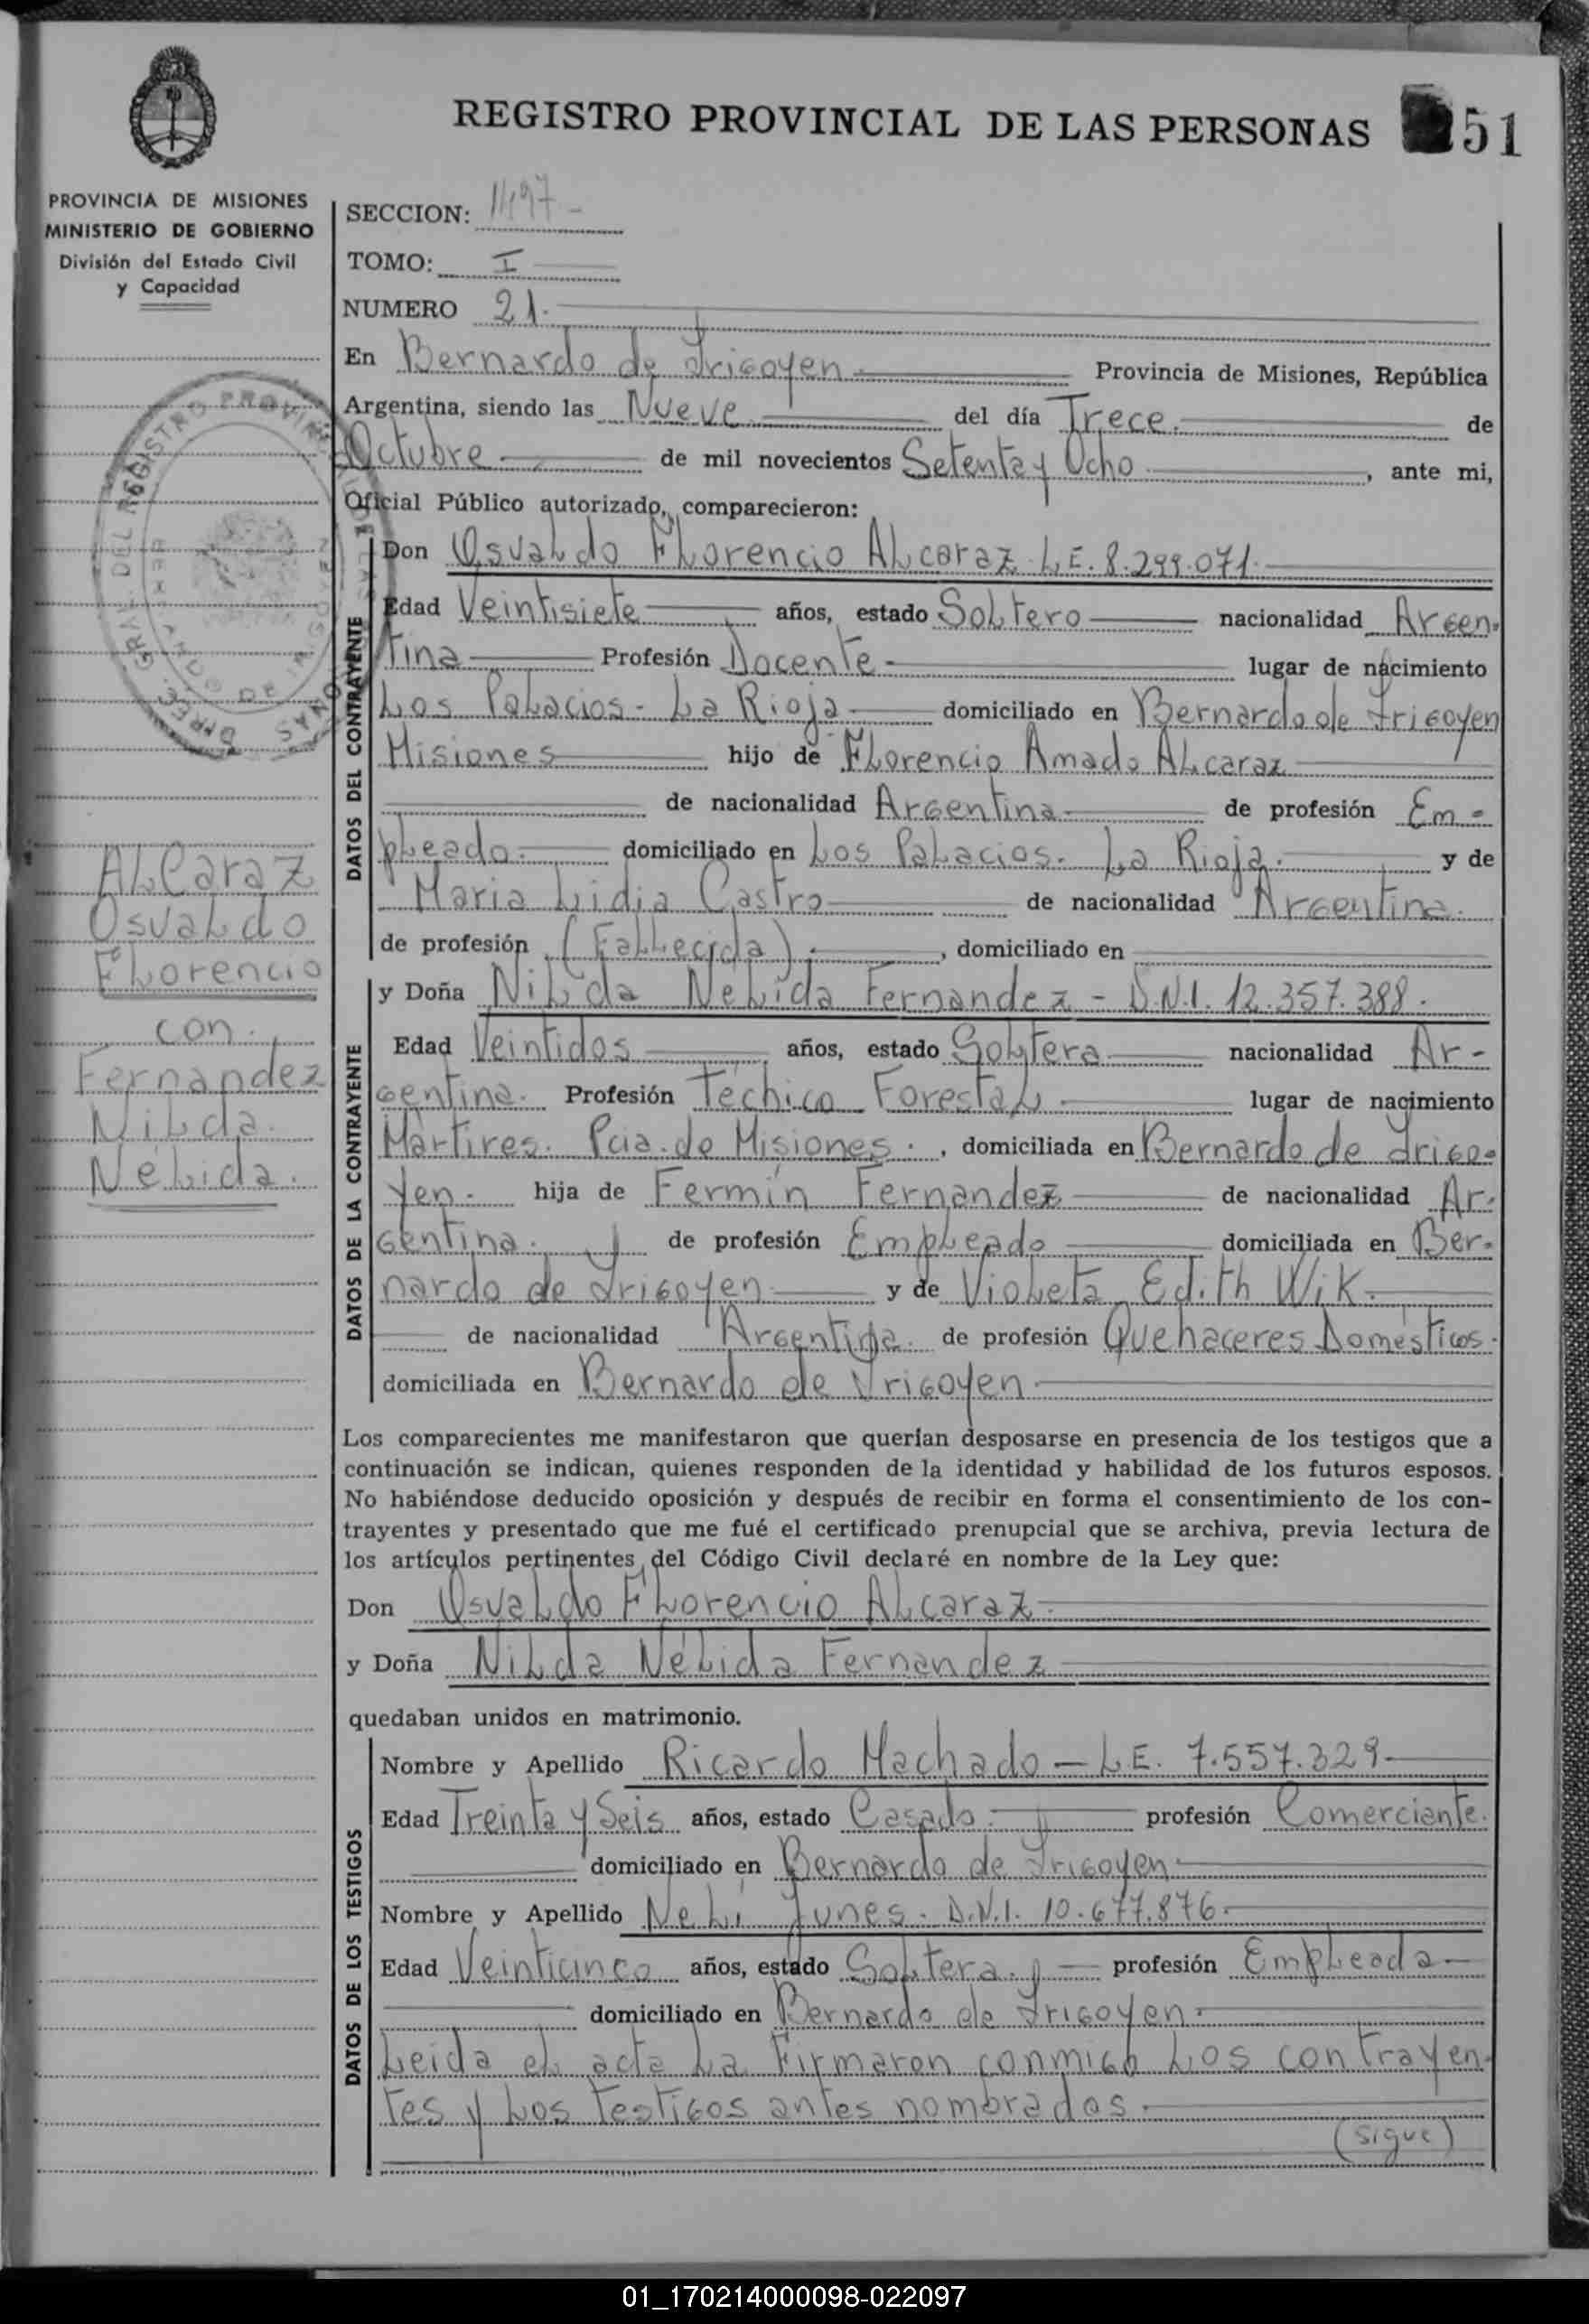 REGISTRO PROVINCIAL DE LAS PERSONAS 51
PROVINCIA DE MISIONES
MINISTERIO DE GOBIERNO
División del Estado Civil
y Capacidad
SECCION:
TOMO: I
NUMERO 21.
En Bernardo de Irigoyen Provincia de Misiones, República
Argentina, siendo las Nueve del día Trece. de
Octubre de mil novecientos Setenta y Ocho, ante mi,
Oficial Público autorizado, comparecieron:
DATOS DEL CONTRAYENTE
Don Osvaldo Florencio Alcaraz L.E. 8.299.071.
Edad Veintisiete años, estado Soltero nacionalidad Argen-
tina Profesión Docente lugar de nacimiento
Los Palacios - La Rioja domiciliado en Bernardo de Irigoyen
Misiones hijo de Florencio Amado Alcaraz
de nacionalidad Argentina de profesión Em-
pleado. domiciliado en Los Palacios. La Rioja. y de
Maria Lidia Castro de nacionalidad Argentina.
de profesión (Fallecida), domiciliado en
Alcaraz
Osvaldo
Florencio
con
Fernandez
Nilda
Nélida.
DATOS DE LA CONTRAYENTE
y Doña Nilda Nelida Fernandez - D.N.I. 12.357.388.
Edad Veintidos años, estado Soltera nacionalidad Ar-
gentina. Profesión Téchico Forestal lugar de nacimiento
Mártires. Pcia. de Misiones., domiciliada en Bernardo de Irigo-
yen. hija de Fermín Fernandez de nacionalidad Ar-
gentina. de profesión Empleado domiciliada en Ber-
nardo de Irigoyen y de Violeta Edith Wik.
de nacionalidad Argentina. de profesión Quehaceres Domésticos.
domiciliada en Bernardo de Irigoyen
Los comparecientes me manifestaron que querían desposarse en presencia de los testigos que a
continuación se indican, quienes responden de la identidad y habilidad de los futuros esposos.
No habiéndose deducido oposición y después de recibir en forma el consentimiento de los con-
trayentes y presentado que me fué el certificado prenupcial que se archiva, previa lectura de
los artículos pertinentes del Código Civil declaré en nombre de la Ley que:
Don Osvaldo Florencio Alcaraz
y Doña Nilda Nélida Fernandez
quedaban unidos en matrimonio.
DATOS DE LOS TESTIGOS
Nombre y Apellido Ricardo Machado - L.E. 7.557.329
Edad Treinta y Seis años, estado Casado profesión Comerciante.
domiciliado en Bernardo de Irigoyen
Nombre y Apellido Neli Junes. D.N.I. 10.677.876.
Edad Veinticinco años, estado Soltera. profesión Empleada
domiciliado en Bernardo de Irigoyen.
Leida el acta la firmaron conmigo los contrayen-
tes y los testigos antes nombrados.
(sigue)
01_170214000098-022097